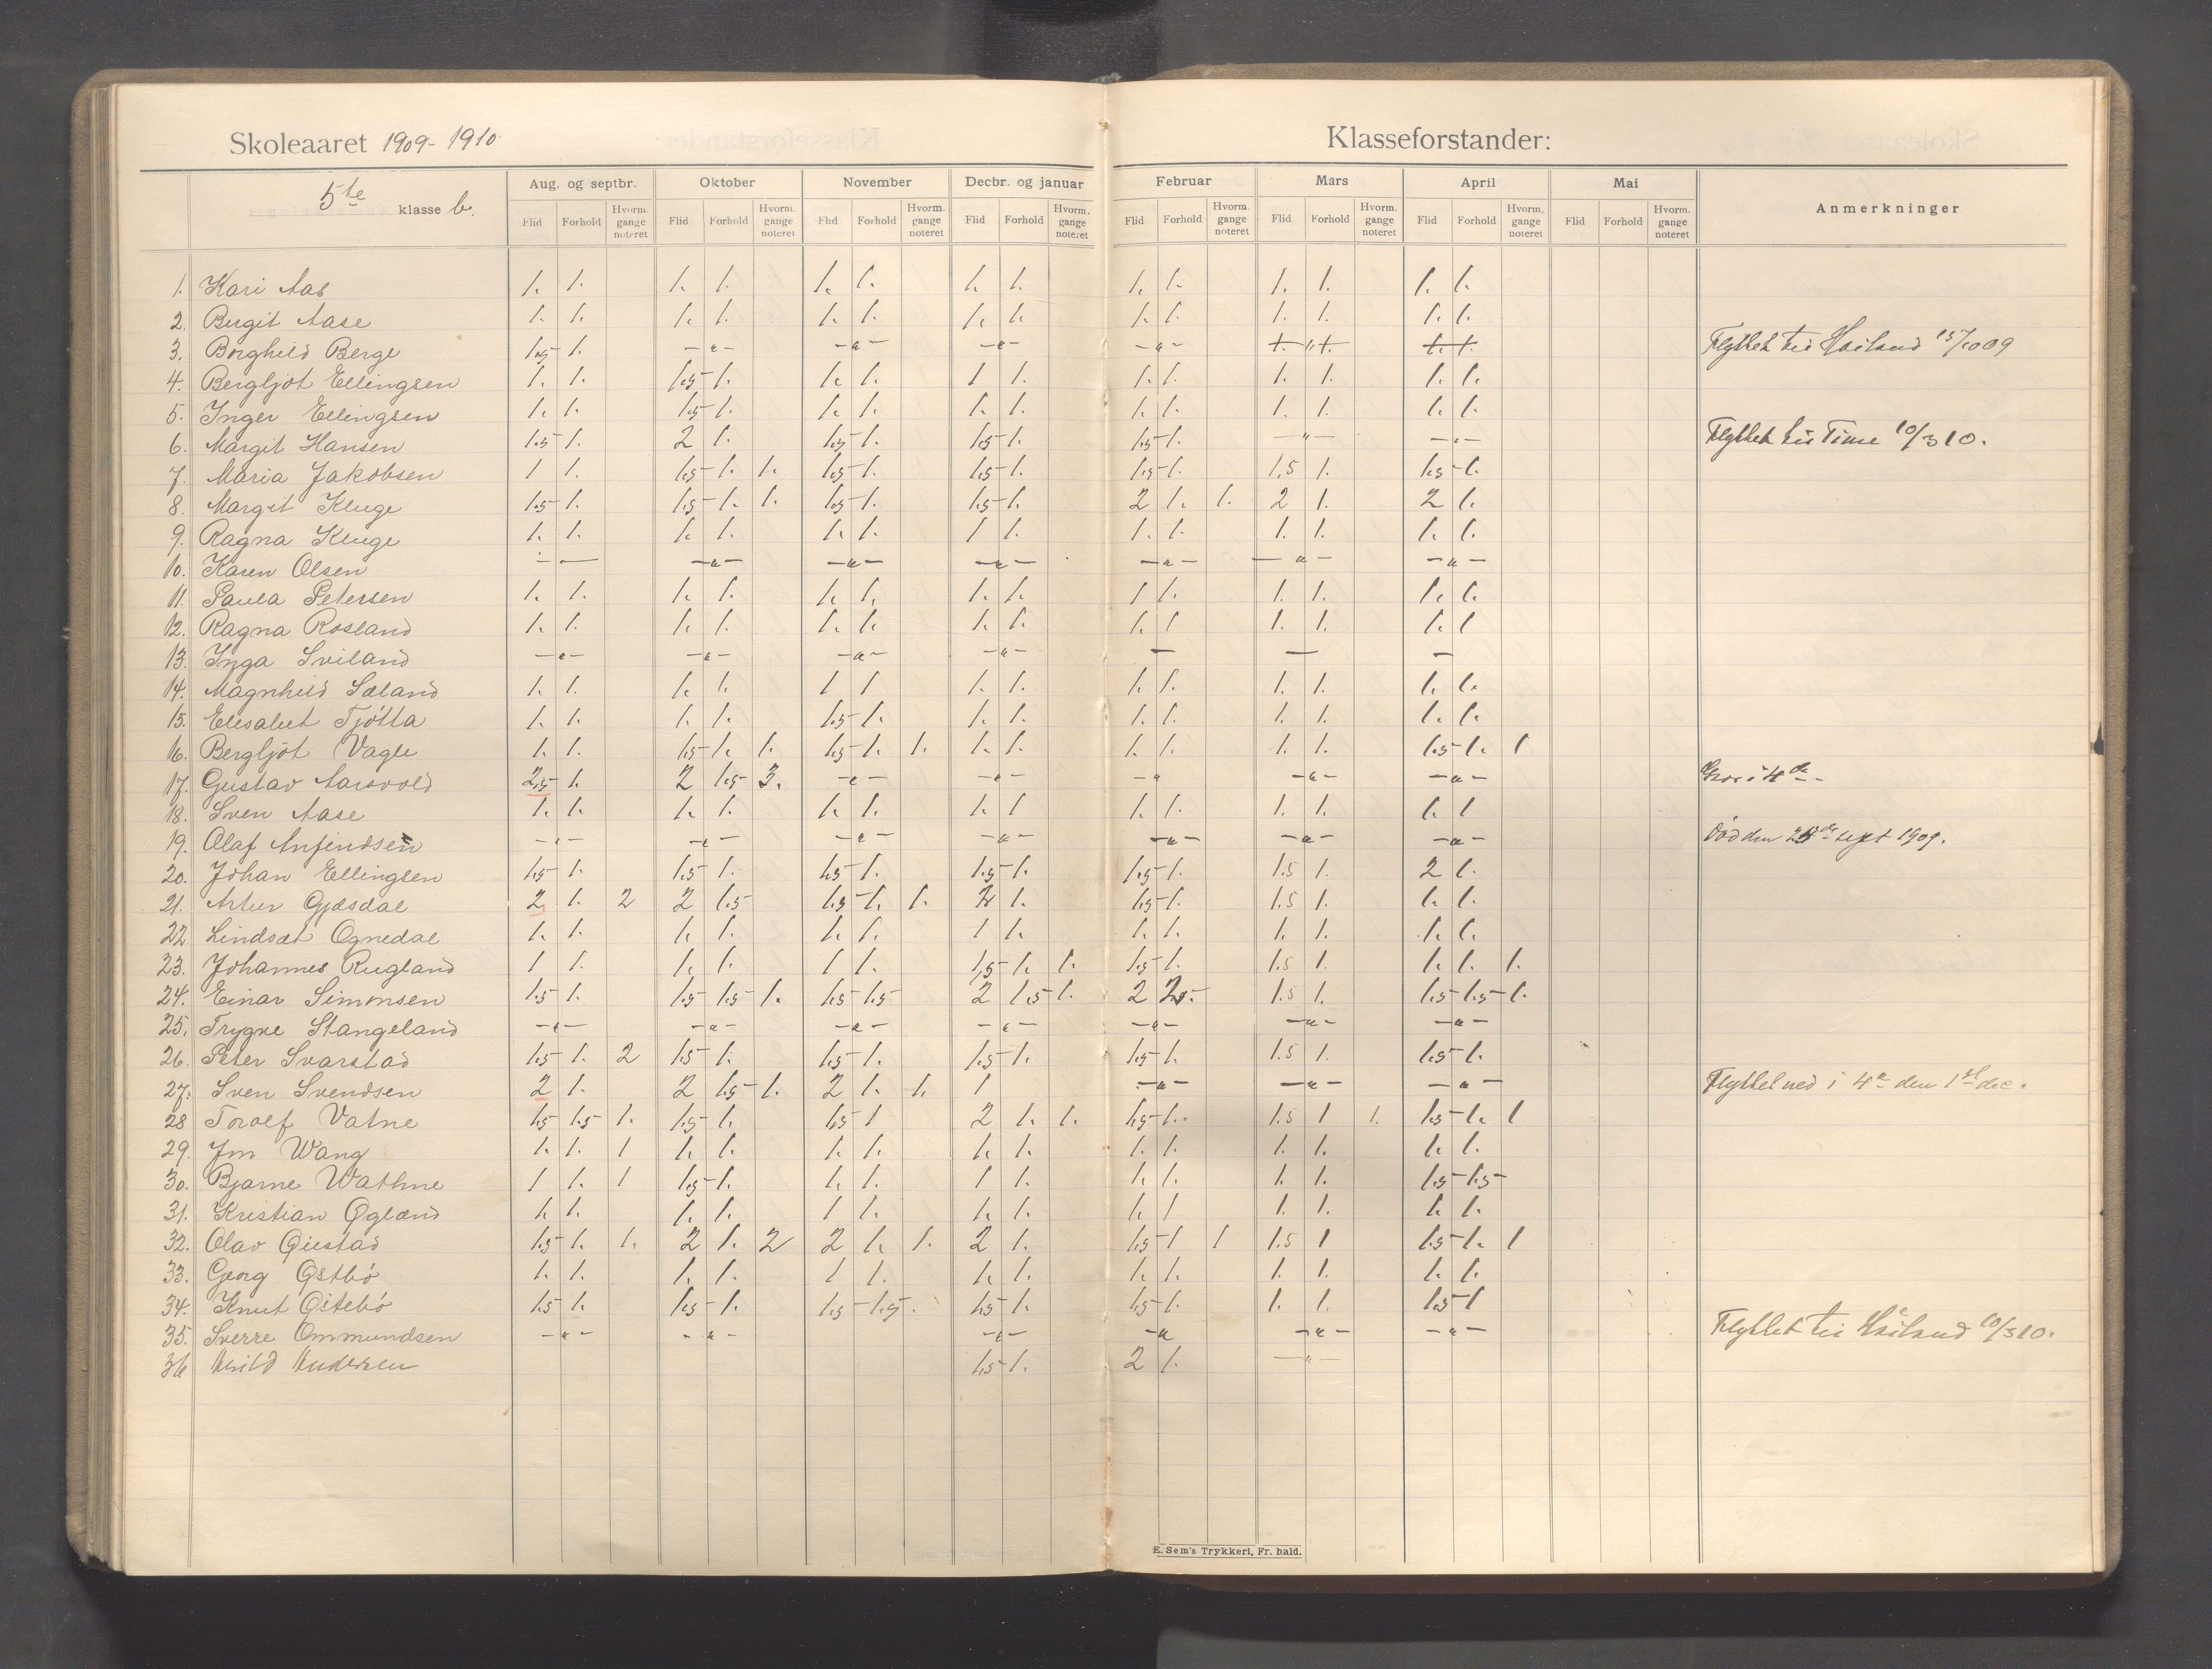 Skoleaaret 1909-1910.
Klasseforstander:
5te klasse b.
Aug. og septbr. Oktober November Decbr. og januar Februar Mars April Mai Anmerkninger
Flid Forhold Hvorm. gange noteret Flid Forhold Hvorm. gange noteret Flid Forhold Hvorm. gange noteret Flid Forhold Hvorm. gange noteret Flid Forhold Hvorm. gange noteret Flid Forhold Hvorm. gange noteret Flid Forhold Hvorm. gange noteret Flid Forhold Hvorm. gange noteret
1. Kari Aas 1. 1. 1. 1. 1. 1. 1. 1. 1. 1. 1. 1. 1. 1.
2. Birgit Aase 1. 1. 1. 1. 1. 1. 1. 1. 1. 1. 1. 1. 1. 1.
3. Borghild Berge 1.5 1. —"— —"— —"— —"— 1. " 1. 1. 1. Flyttet til Høiland 15/10 09
4. Bergljot Ellingsen 1. 1. 1.5 1. 1. 1. 1 1. 1. 1. 1. 1. 1. 1.
5. Inger Ellingsen 1. 1. 1.5 1. 1. 1. 1. 1. 1. 1. 1. 1. 1. 1.
6. Margit Hansen 1.5 1. 2 1. 1.5 1. 1.5 1. 1.5 1. —"— —"— Flyttet til Time 10/3 10.
7. Maria Jakobsen 1 1. 1.5 1. 1. 1.5 1. 1.5 1. 1.5 1. 1,5 1. 1.5 1.
8. Margit Kluge 1.5 1. 1.5 1. 1. 1.5 1. 1.5 1. 2 1. 1. 2 1. 2 1.
9. Ragna Kluge 1. 1. 1. 1. 1. 1. 1 1. 1. 1. 1. 1. 1. 1.
10. Karen Olsen —— —"— —"— —"— —"— —"— —"—
11. Paula Petersen 1. 1. 1. 1. 1. 1. 1. 1. 1 1. 1. 1. 1. 1.
12. Ragna Rosland 1. 1. 1. 1. 1. 1. 1. 1. 1. 1 1. 1. 1. 1
13. Inga Sviland —"— —"— —"— —"— — — —
14. Magnhild Sæland 1. 1. 1. 1. 1 1 1. 1. 1. 1. 1. 1. 1. 1.
15. Elisabet Tjötta 1. 1. 1. 1. 1.5 1. 1. 1. 1. 1. 1. 1. 1. 1.
16. Bergljot Vagle 1. 1. 1.5 1. 1. 1.5 1. 1. 1. 1. 1. 1. 1. 1. 1.5 1. 1
17. Gustav Aarsvold 2,5 1. 2 1.5 3. —"— —"— —" —"— —"—
18. Sven Aase 1. 1. 1. 1. 1. 1. 1. 1 1. 1. 1. 1. 1. 1
19. Olaf Anfindsen —"— —"— —"— —"— —"— —"— —"— Död den 25de sept 1909.
20. Johan Ellingsen 1.5 1. 1.5 1. 1.5 1. 1.5 1. 1.5 1. 1.5 1. 2 1.
21. Artur Gjesdal 2 1. 2 2 1.5 1.5 1. 1. 2 1. 1.5 1. 1.5 1. 1. 1.
22 Lindsæt Ognedal 1. 1. 1. 1. 1. 1. 1 1. 1. 1. 1. 1. 1. 1.
23. Johannes Rugland 1 1. 1. 1. 1 1. 1,5 1. 1. 1.5 1. 1.5 1. 1. 1. 1.
24. Einar Simonsen 1.5 1. 1.5 1.5 1. 1.5 1.5 2 1.5 1. 2 2. 1.5 1. 1.5 1.5 1.
25. Trygve Stangeland —"— —"— —"— —"— —"— —"— —"—
26. Peter Svarstad 1.5 1. 2 1.5 1. 1.5 1. 1.5 1. 1.5 1. 1.5 1. 1.5 1.
27. Sven Svendsen 2 1. 2 1.5 1. 2 1. 1. 1 —"— —"— —"— Flyttet ned i 4e den 1st dec.
28 Torolf Vatne 1.5 1.5 1. 1.5 1. 1.5 1 2 1. 1. 1.5 1. 1.5 1 1. 1.5 1. 1
29. Jon Wang 1. 1. 1 1. 1. 1. 1. 1. 1. 1. 1. 1. 1. 1. 1.
30. Bjarne Wathne 1 1. 1 1.5 1. 1. 1. 1 1. 1. 1. 1. 1. 1.5 1.5
31. Kristian Øgland 1. 1. 1. 1. 1 1. 1. 1. 1. 1 1. 1. 1. 1.
32. Olav 1.5 1. 1. 2 1. 2 2 1. 1. 2 1. 1.5 1 1 1.5 1 1.5 1. 1
33. Georg Østbö 1. 1. 1. 1. 1 1. 1. 1. 1. 1. 1. 1. 1. 1.
34. Knut Østebö 1.5 1. 1.5 1. 1.5 1.5 1.5 1. 1.5 1. 1. 1. 1.5 1
35. Sverre Ommundsen —"— —"— —"— —" —"— —"— Flyttet til Høiland 10/3 10.
36 Andersen 1.5 1. 2 1. —"—
E. Sem's Trykkeri, Fr. hald.